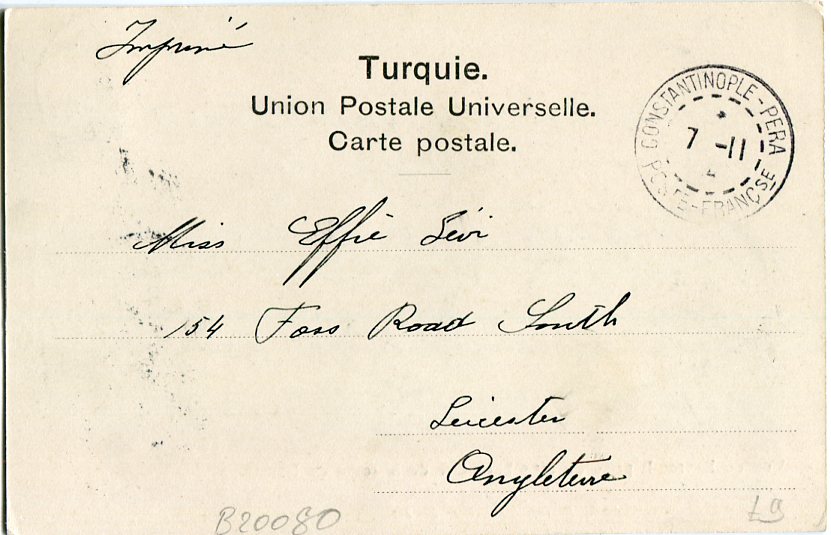 Imprimé
Turquie.
Union Postale Universelle.
Carte postale.
CONSTANTINOPLE-PERA
7 -11
POSTE-FRANÇSE
Miss Effie Lévi
154 Foss Road South
Leicester
Angleterre
B20080